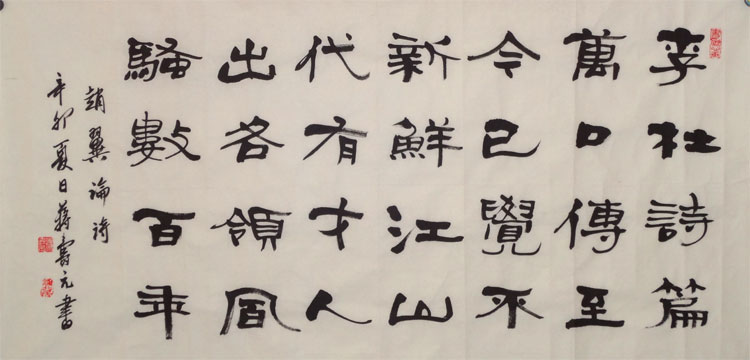 李杜詩篇
萬口傳至
今已覺不
新鮮江山
代有才人
出各領風
騷數百年
趙翼論詩
辛卯夏日蔣元書